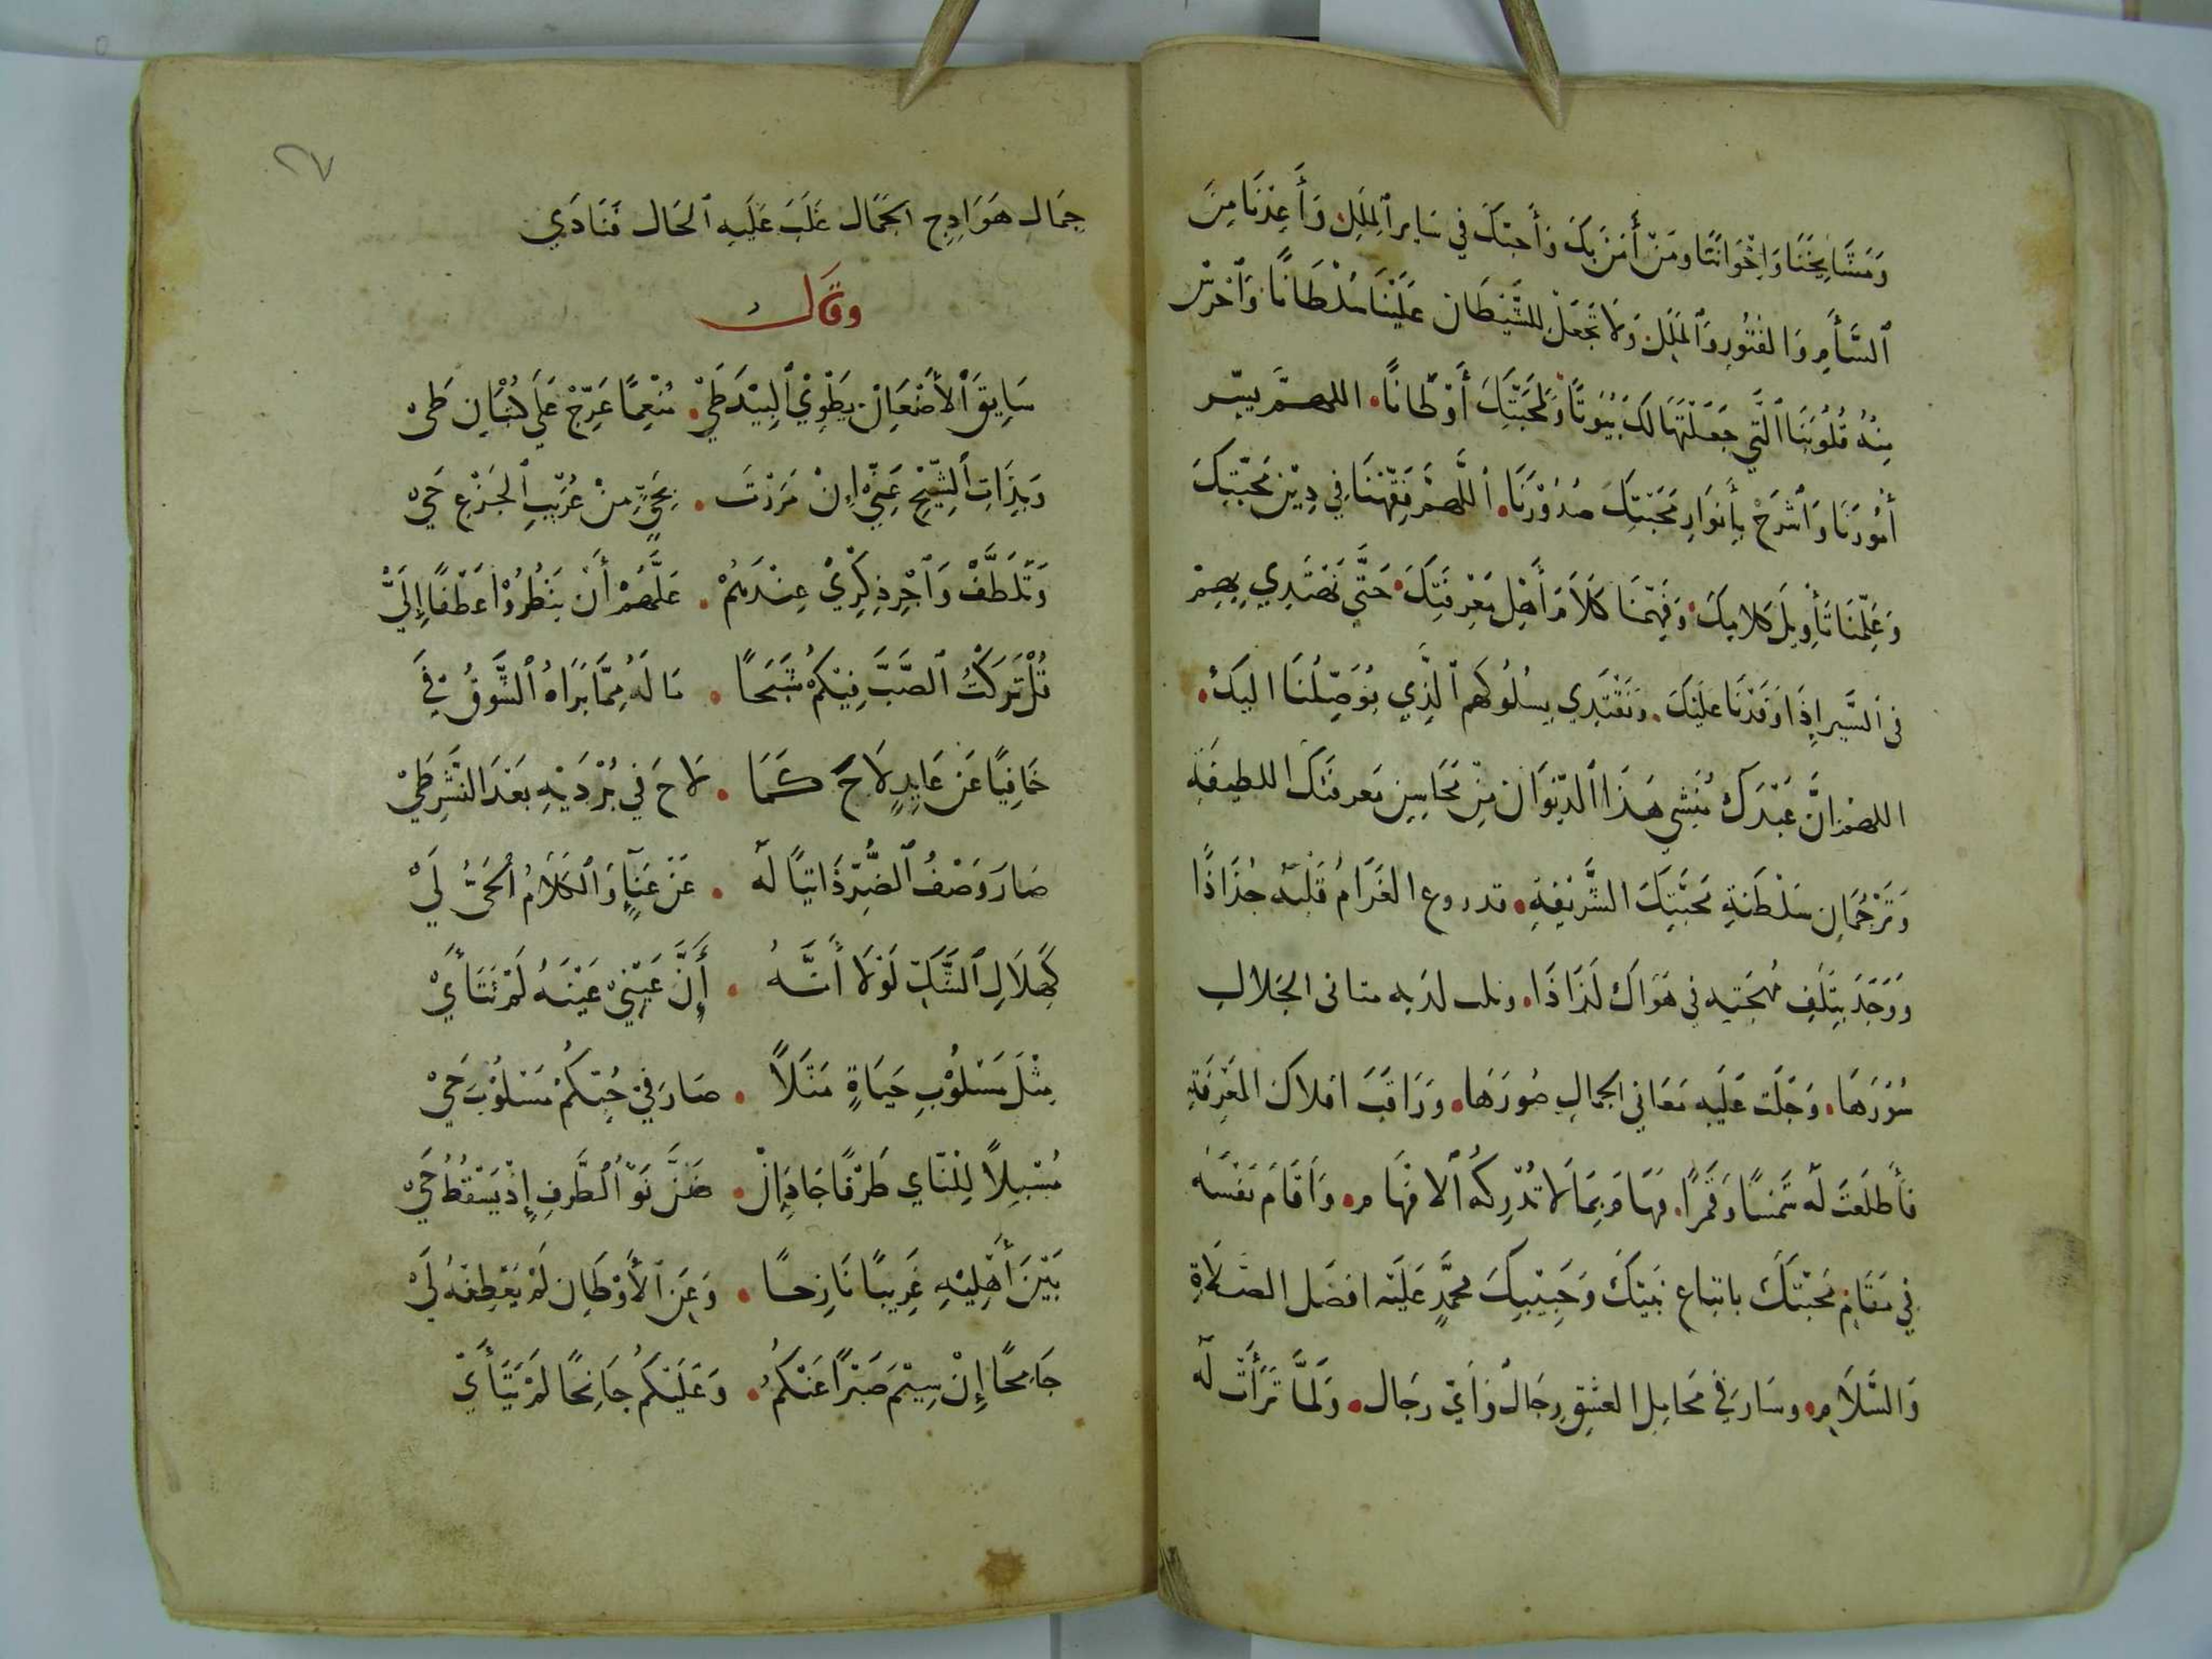 وَمَشَايِخَنَا وَاِخْوَانَنَا وَمَنْ أَمَنَ بِكَ وَأَحَبَّكَ فِي سَايِرِ ٱلْمِلَلِ وَأَعِذْنَا مِنَ
ٱلسَّأَمِ وَالفُتُورِ وَٱلمَلَلِ وَلَا تَجْعَلْ لِلشَّيْطَانِ عَلَيْنَا سُلْطَانًا وَٱحْرُسْ
مِنْهُ قُلُوبَنَا ٱلَّتِي جَعَلْتَهَا لَكَ بُيُوتًا وَلِمَحَبَّتِكَ أَوْطَانًا. اللهمَّ يَسِّر
أُمُورَنَا وَٱشْرَحْ بِأَنوَارِ مَحَبَّتِكَ صُدُوْرَنَا. اَللَّهمَّ فَقِّهْنَا فِي دِيْنِ مَحَبَّتِكَ
وَعَلِّمْنَا تَأْوِيلَ كَلامِكَ. وَفَهِّمْنَا كَلَامَ أَهْلِ مَعْرِفَتِكَ. حَتَّى نَهْتَدِي بِهِمْ
فى السَّيرِ إِذَا وَفَدْنَا عَلَيْكَ. وَنَقْتَدِي بِسُلُوكِهِم ٱلَّذِي يُوَصِّلُنَا اليكَ.
اللهمَّ اِنَّ عَبْدَكَ مُنشِي هَذَا ٱلدِّيْوَانِ مِنْ مَحَاسِنِ مَعرِفَتِكَ اللطيفَةِ
وَتَرْجُمَانِ سَلْطَنَةِ مَحَبَّتِكَ الشَّرِيْفَةِ. قد روع الغَرَامُ قَلْبَهُ جُذَاذًا
وَوَجَدَ بِتَلَفِ مُهْجَتِهِ فِي هَوَاكَ لَذَاذًا. وتلت لديه مثانى الجَلالِ
سُوَرَهَا. وَجَلَت عَلَيهِ مَعَانِي الجمالِ صُوَرَهَا. وَرَاقَبَ افلاكَ المَعْرِفَةِ
فَأَطلَعَتْ لَهُ شَمْسًا وَقَمَرًا. فَهَامَ بِمَا لَا تُدْرِكُهُ ٱلافْهَام. وَاَقَامَ نَفْسَهُ
فِي مَقَامِ مَحَبَّتِكَ باتباع نَبِيِّكَ وَحَبِيْبِكَ محمَّدٍ عَلَيْهِ افضَل الصَّلَاةِ
وَالسَّلَام. وسَارَ فِي مَحَامِلِ العِشْقِ رِجَالٌ وَاَيّ رجَال. وَلَمَّا تَرَأَتْ لَهُ
٢٧
جِمَال هَوَادِجِ الجَمَال غَلَبَ عَلَيهِ ٱلحَال فَنَادَي
وقال
سَايِقَ ٱلْأَضْعَانِ يَطْوِيْ ٱلْبِيْدَ طَيّْ. مُنْعِمًا عَرِّجْ عَلَى كُثْبَانِ طَىْ
وَبِذَاتِ ٱلشِّيْحِ عَنِّيْ اِنْ مَرَرْتَ. بِحَيٍّ مِنْ عُرَيْبِ ٱلْجَزْعِ حَيْ
وَتَلَطَّفْ وَٱجْرِ ذِكْرِيْ عِنْدَهُمْ. عَلَّهُمْ أَنْ يَنْظُرُوْا عَطْفًا إِلَيْ
قُلْ تَرَكْتُ ٱلصَّبَّ فِيْكُمْ شَبَحًا. مَا لَهُ مِمَّا بَرَاهُ ٱلشَّوقُ فَيْ
خَافِيًا عَنْ عَايِدٍ لَاحَ كَمَا. لَاحَ فِي بُرْدَيْهِ بَعْدَ النَّشْرِ طَيْ
صَارَ وَصْفُ ٱلضُّرِّ ذَاتِيًا لَهُ. عَنْ عَنَآءٍ وَٱلْكَلَامُ ٱلْحَىُّ لَيْ
كَهِلَالِ ٱلشَّكِّ لَوْلَا أَنَّهُ. أَنَّ عَيْنِيْ عَيْنَهُ لَمْ تَتَأَيْ
مِثْلَ مَسْلُوْبِ حَيَاةٍ مَثَلًا. صَارَ فِيْ حُبِّكُمْ مَسْلُوْبَ حَيْ
مُسْبِلًا لِلنَّاي طَرْفًا جَادَ إِنْ. ضَنَّ نَوْءُ ٱلطَّرفِ إِذْ يَسْقُطُ حَيْ
بَيْنَ أَهْلِيْهِ غَرِيبًا نَازِحًا. وَعَنِ ٱلأَوْطَانِ لَمْ يَعْطِفْهُ لَيْ
جَامِحًا إِنْ سِيْمَ صَبْرًا عَنْكُمُ. وَعَلَيْكُم جَانِحًا لَمْ يَتَأَيّ